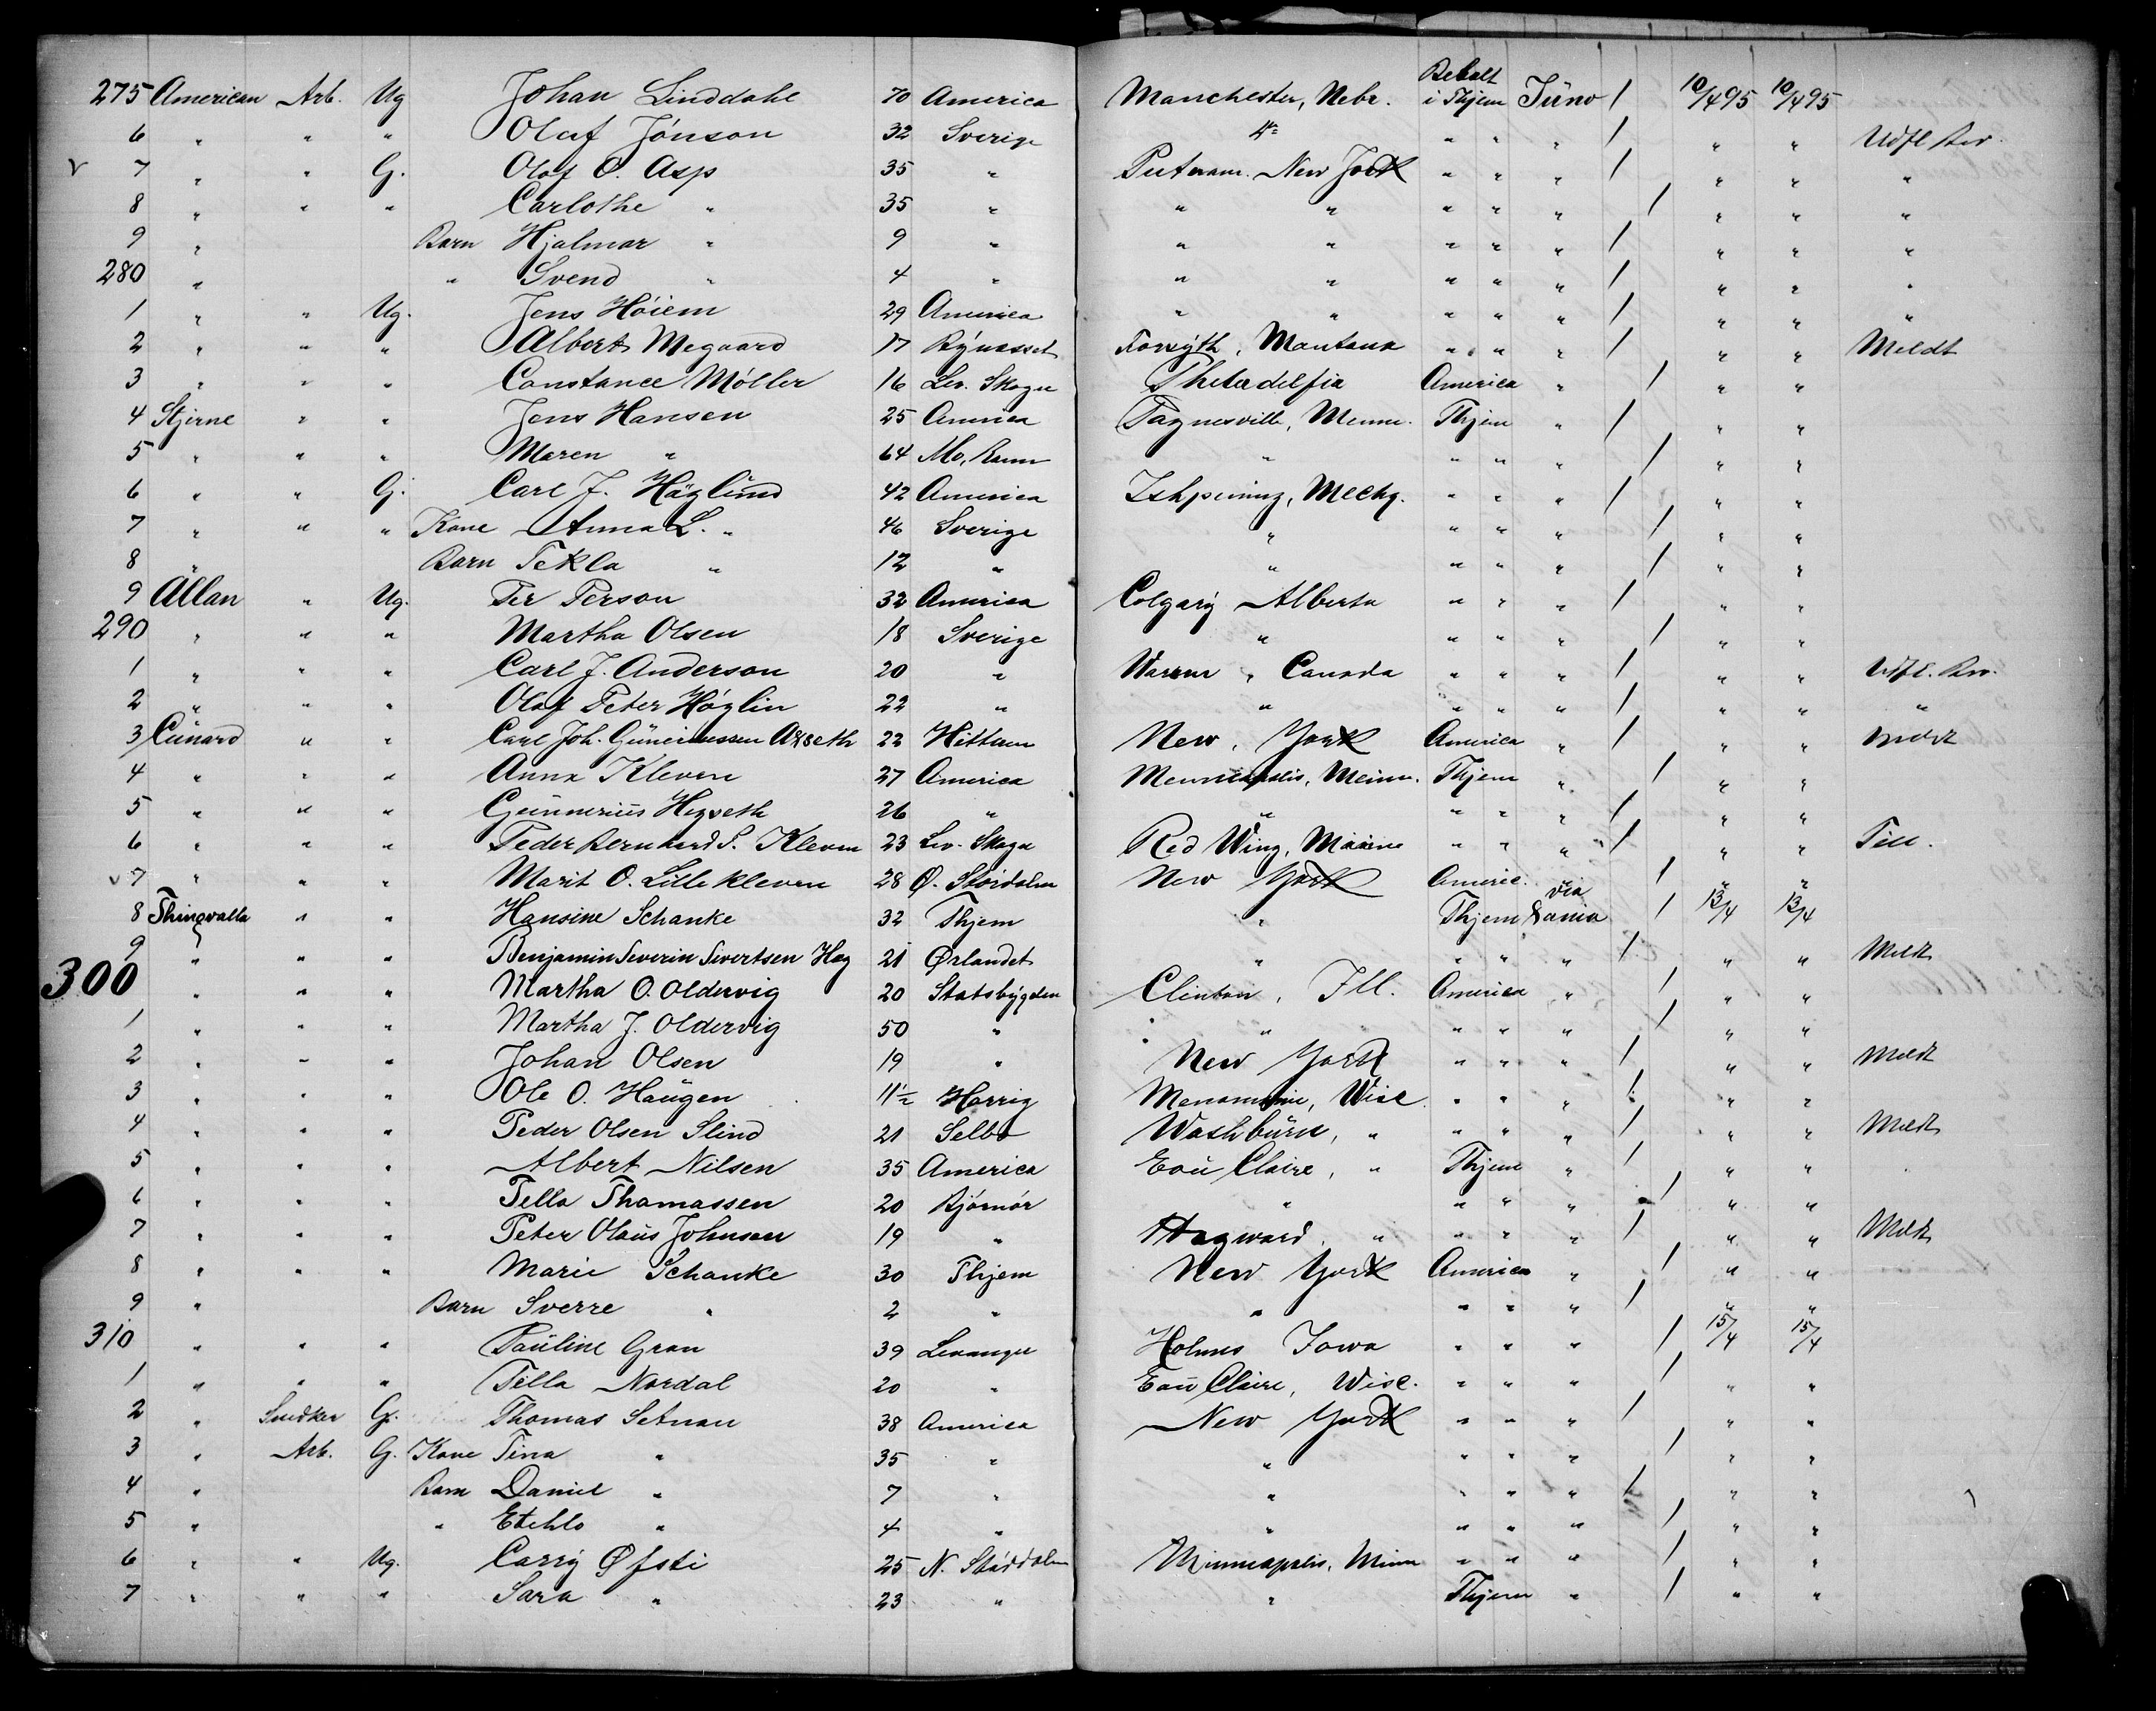 275 American Arb. Ug Johan Linddahl 70 America Manchester, Nebr. Betalt i Thjem Juno / 10/4 95 10/4 95
6 " " " Olaf Jónson 32 Sverige " " " / " " Udfl Bev.
7 " " G. Olof O. Asp 35 " Putnam. New York " " " / " " "
8 " " " Carlothe " 35 " " " " " " / " " "
9 " Barn Hjalmar " 9 " " " " " " / " " "
280 " " Svend " 4 " " " " " " / " " "
1 " " Ug. Jens Höiem 29 America " " " " " / " " "
2 " " " Albert Megaard 17 Býnesset Forsyth, Montana " " " / " " Meldt
3 " " " Constance Möller 16 Lev. Skogn Philadelfia America " / " "
4 Stjerne " " Jens Hansen 25 America Paynesville, Menn. Thjem " / " "
5 " " " Maren " 64 Mo, Rann " " " " / " "
6 " " G. Carl J. Häglund 42 America Ishpeming, Mechg. " " " / " "
7 " " " Kone Anna L. " 46 Sverige " " " " / " "
8 " Barn Tekla " 12 " " " " " / " "
9 Allan " Ug. Per Person 32 America Colgarý Alberta " " " / " "
290 " " " Martha Olsen 18 Sverige " " " " / " "
1 " " " Carl J. Anderson 20 " Warren " Canada " " " / " " Udfl. Bev.
2 " " " Olof Peter Höglin 22 " " " " " / " " "
3 Cunard " " Carl Joh. Axseth 22 Hittern New, York America " / " " Meldt
4 " " " Anna Kleven 27 America Menneapolis, Meinn. Thjem " / " "
5 " " " Gunnerius Hegseth 26 " " " " " / " "
6 " " " Peder Bernhard P. Kleven 23 Lev. Skogn Red Wing, Minne " " " / " " Till.
7 " " " Marit O. Lillekleven 28 Ø. Stördalen New York Americ. " / " "
8 Thingvalla " " Hansine Schanke 32 Thjem " Thjem via Dania / 13/4 13/4
9 " " " Benjamin Severin Sivertsen Hag 21 Ørlandet " " " " / " " Meldt
300 " " " Martha O. Oldervig 20 Statsbýgden Clinton, Ill. America " / " "
1 " " " Martha J. Oldervig 50 " " " " " " / " "
2 " " " Johan Olsen 19 " New York " " " / " " Meldt
3 " " " Ole O. Haugen 11 1/2 Horrig Menomnie, Wisc. " " " / " "
4 " " " Peder Olsen Slind 21 Selbo Washburn, " " " " / " " Meldt
5 " " " Albert Nilsen 35 America Eau Claire, " Thjem " / " "
6 " " " Pella Thomassen 20 Bjórnór " " " " / " "
7 " " " Peter Olaus Johnsen 19 " Hagward. " " " " / " " Meldt
8 " " " Marie Schanke 30 Thjem New York America " / " "
9 " Barn Sverre " 2 " " " " " / " "
310 " " " Pauline Gran 39 Levanger Holmes Iowa " " " / 15/4 15/4
1 " " " Pella Nordal 20 " Eau Claire, Wisc. " " " / " "
2 " Snedker G. Thomas Setnan 38 America New York " " " / " "
3 " Arb. G. Kone Tina " 35 " " " " " / " "
4 " Barn Daniel " 7 " " " " " / " "
5 " " Etehlo " 4 " " " " " / " "
6 " " Ug. Carrý Øfsti 25 N. Stórdalen Minneapolis, Minn " " " / " "
7 " " " Sara " 23 " " Thjem " / " "